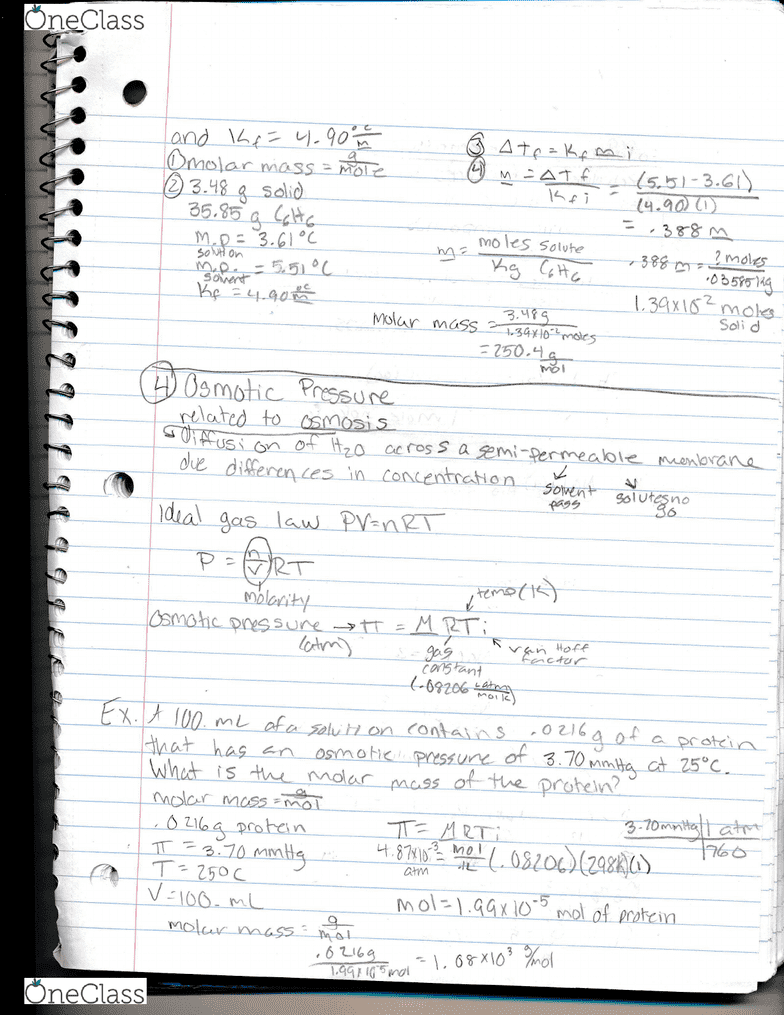 OneClass
and Kf = 4.90 °C/m
① molar mass = g/mole
② 3.48 g solid
35.85 g C6H6
M.p = 3.61°C
solution
m.p. = 5.51°C
solvent
Kf = 4.90 °C/m
③ Δtf = Kf m i
④ m = Δtf/Kf i = (5.51-3.61)/(4.90)(1)
= .388 m
m = moles solute/Kg C6H6
.388 m = ? moles/.03585 kg
1.39x10^-2 moles
solid
molar mass = 3.48g/1.39x10^-2 moles
= 250.4 g/mol
④ Osmotic Pressure
related to osmosis
↳ Diffusion of H2O across a semi-permeable membrane
due differences in concentration
solvent pass
solutes no go
Ideal gas law PV=nRT
P = (n/V)RT
molarity
temp (K)
Osmotic pressure → π = MRTi
(atm)
van Hoff factor
gas constant
(.08206 L atm/mol K)
Ex. A 100. mL of a solution contains .0216g of a protein
that has an osmotic pressure of 3.70 mmHg at 25°C.
What is the molar mass of the protein?
molar mass = g/mol
.0216g protein
π = 3.70 mmHg
T = 25°C
V = 100. mL
π = MRTi
3.70 mmHg | 1 atm
| 760
4.87x10^-3 atm = mol/.1L (.08206)(298K)(1)
mol = 1.99x10^-5 mol of protein
molar mass = g/mol
.0216g/1.99x10^-5 mol = 1.08x10^3 g/mol
OneClass